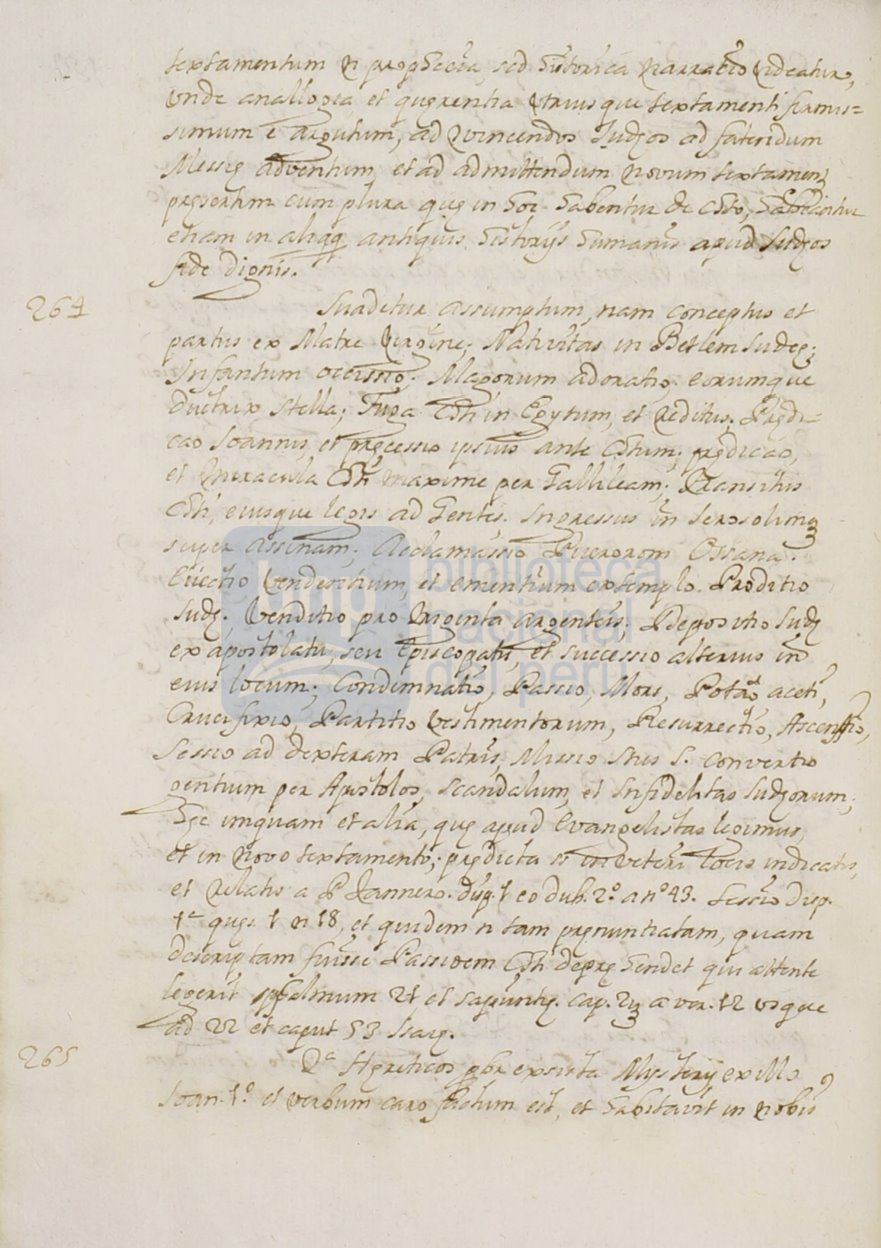 textamentum n prophecia, sed historica narratio videatur,
Unde anallogia, et querentia utriusque textamenti firmis=
simum e argutum, ad vincendos Judęos ad fatendum
Messię adventum, et ad admittendum novum textamen
pręsertim cum plura quę in hoc habentur de Chto,
etiam in antiquis historijs humanis apud Judęos
fide dignis.
264 Suadetur assumptum, nam conceptus et
partus ex Matre Virgine; Nativitas in Betlem Judeę;
Infantum occissio; Magorum adoratio, eorumque
ductrix stella; Fuga Chti in Egytum, et reditus, Prędi=
cao Joannis, et pręcessio ipsius ante Chtum; prędicao,
et miracula Chti maxime per Gallileam; Transitus
Chti, eiusque legis ad Gentes. Ingressus in Jerosolimę
super Assinam; Acclamassio Puerorom Ossana.
Eiectio vendentium, et ementium extemplo. Proditio
Judę. Venditio pro triginta argenteis; Depositio Judę
ex apostolatu, seu Episcopatu, et successio alterius in
eius locum; Condemnatio, Passio, Mors, Potao aceti,
Crucifixio, Partitio vestimentorum, Resurrectio, Ascenssio,
Sessio ad dexteram Patris, Missio Stus S. convertio
gentium per Apostolos, scandalum, et infidelitas Judęorum;
Hęc imquam et alia, quę apud Evangelistas legimus,
et in novo textamento; prędicta st in veteri locis indicatis,
et relatis a P. Jannero. disp. 1 eo dub. 2º a nº 43. Disp.
1ª quęs. 1 n 18, et quidem n tam pręnuntiatam, quam
descriptam fuisse Passioem Chti depręhendet qui attente
legerit psalmum 21 et sapientię. cap. 2 a ver. 12 usque
ad 22 et caput 53 Isaię.
265 2ª Hęreticos pbr exsistia Mysterij ex illo
Joan. 1º et verbum caro factum est, et habitavit in nobis
biblioteca
nacional
del perú